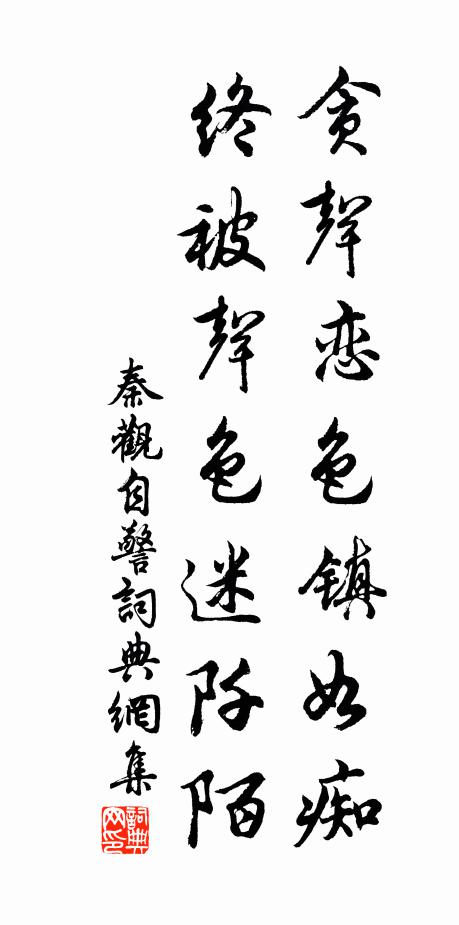 贪聲恋色镇如痴
终被聲色迷阡陌
秦觀自警詞典網集
詞典网印